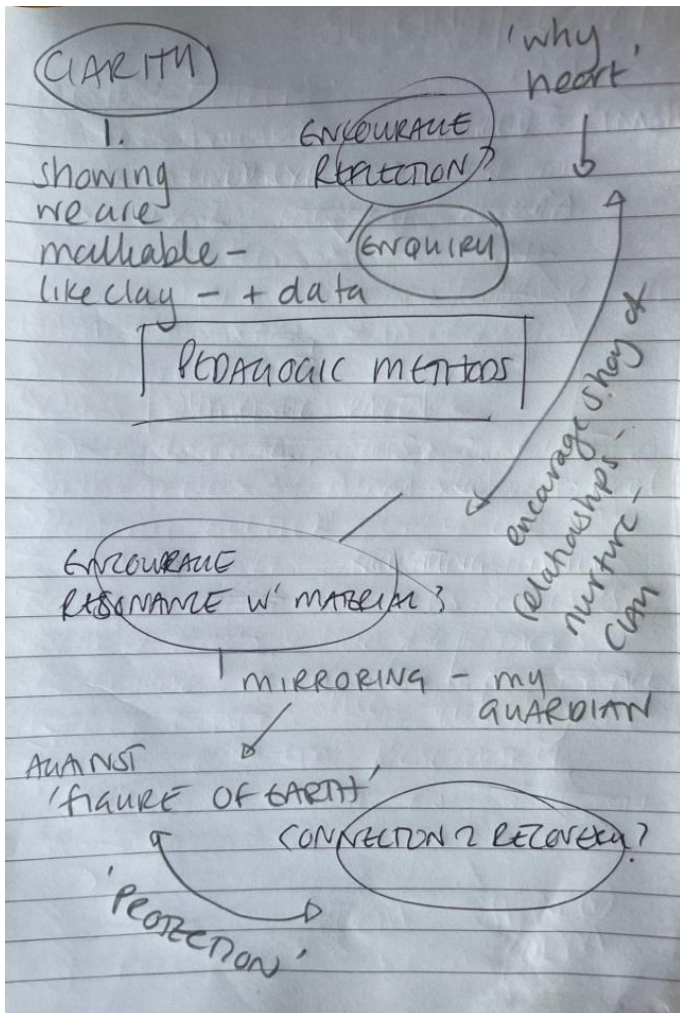 CLARITY
'why
heart'
1.
showing
we are
malleable -
like clay - + data
ENCOURAGE
REFLECTION?
ENQUIRY
PEDAGOGIC METHODS
encourage
relationships -
nurture -
clay
ENCOURAGE
RESONANCE W' MATERIAL?
MIRRORING - my
GUARDIAN
AGAINST
'FIGURE OF EARTH'
CONNECTION 2 RECOVERY?
'PROTECTION'